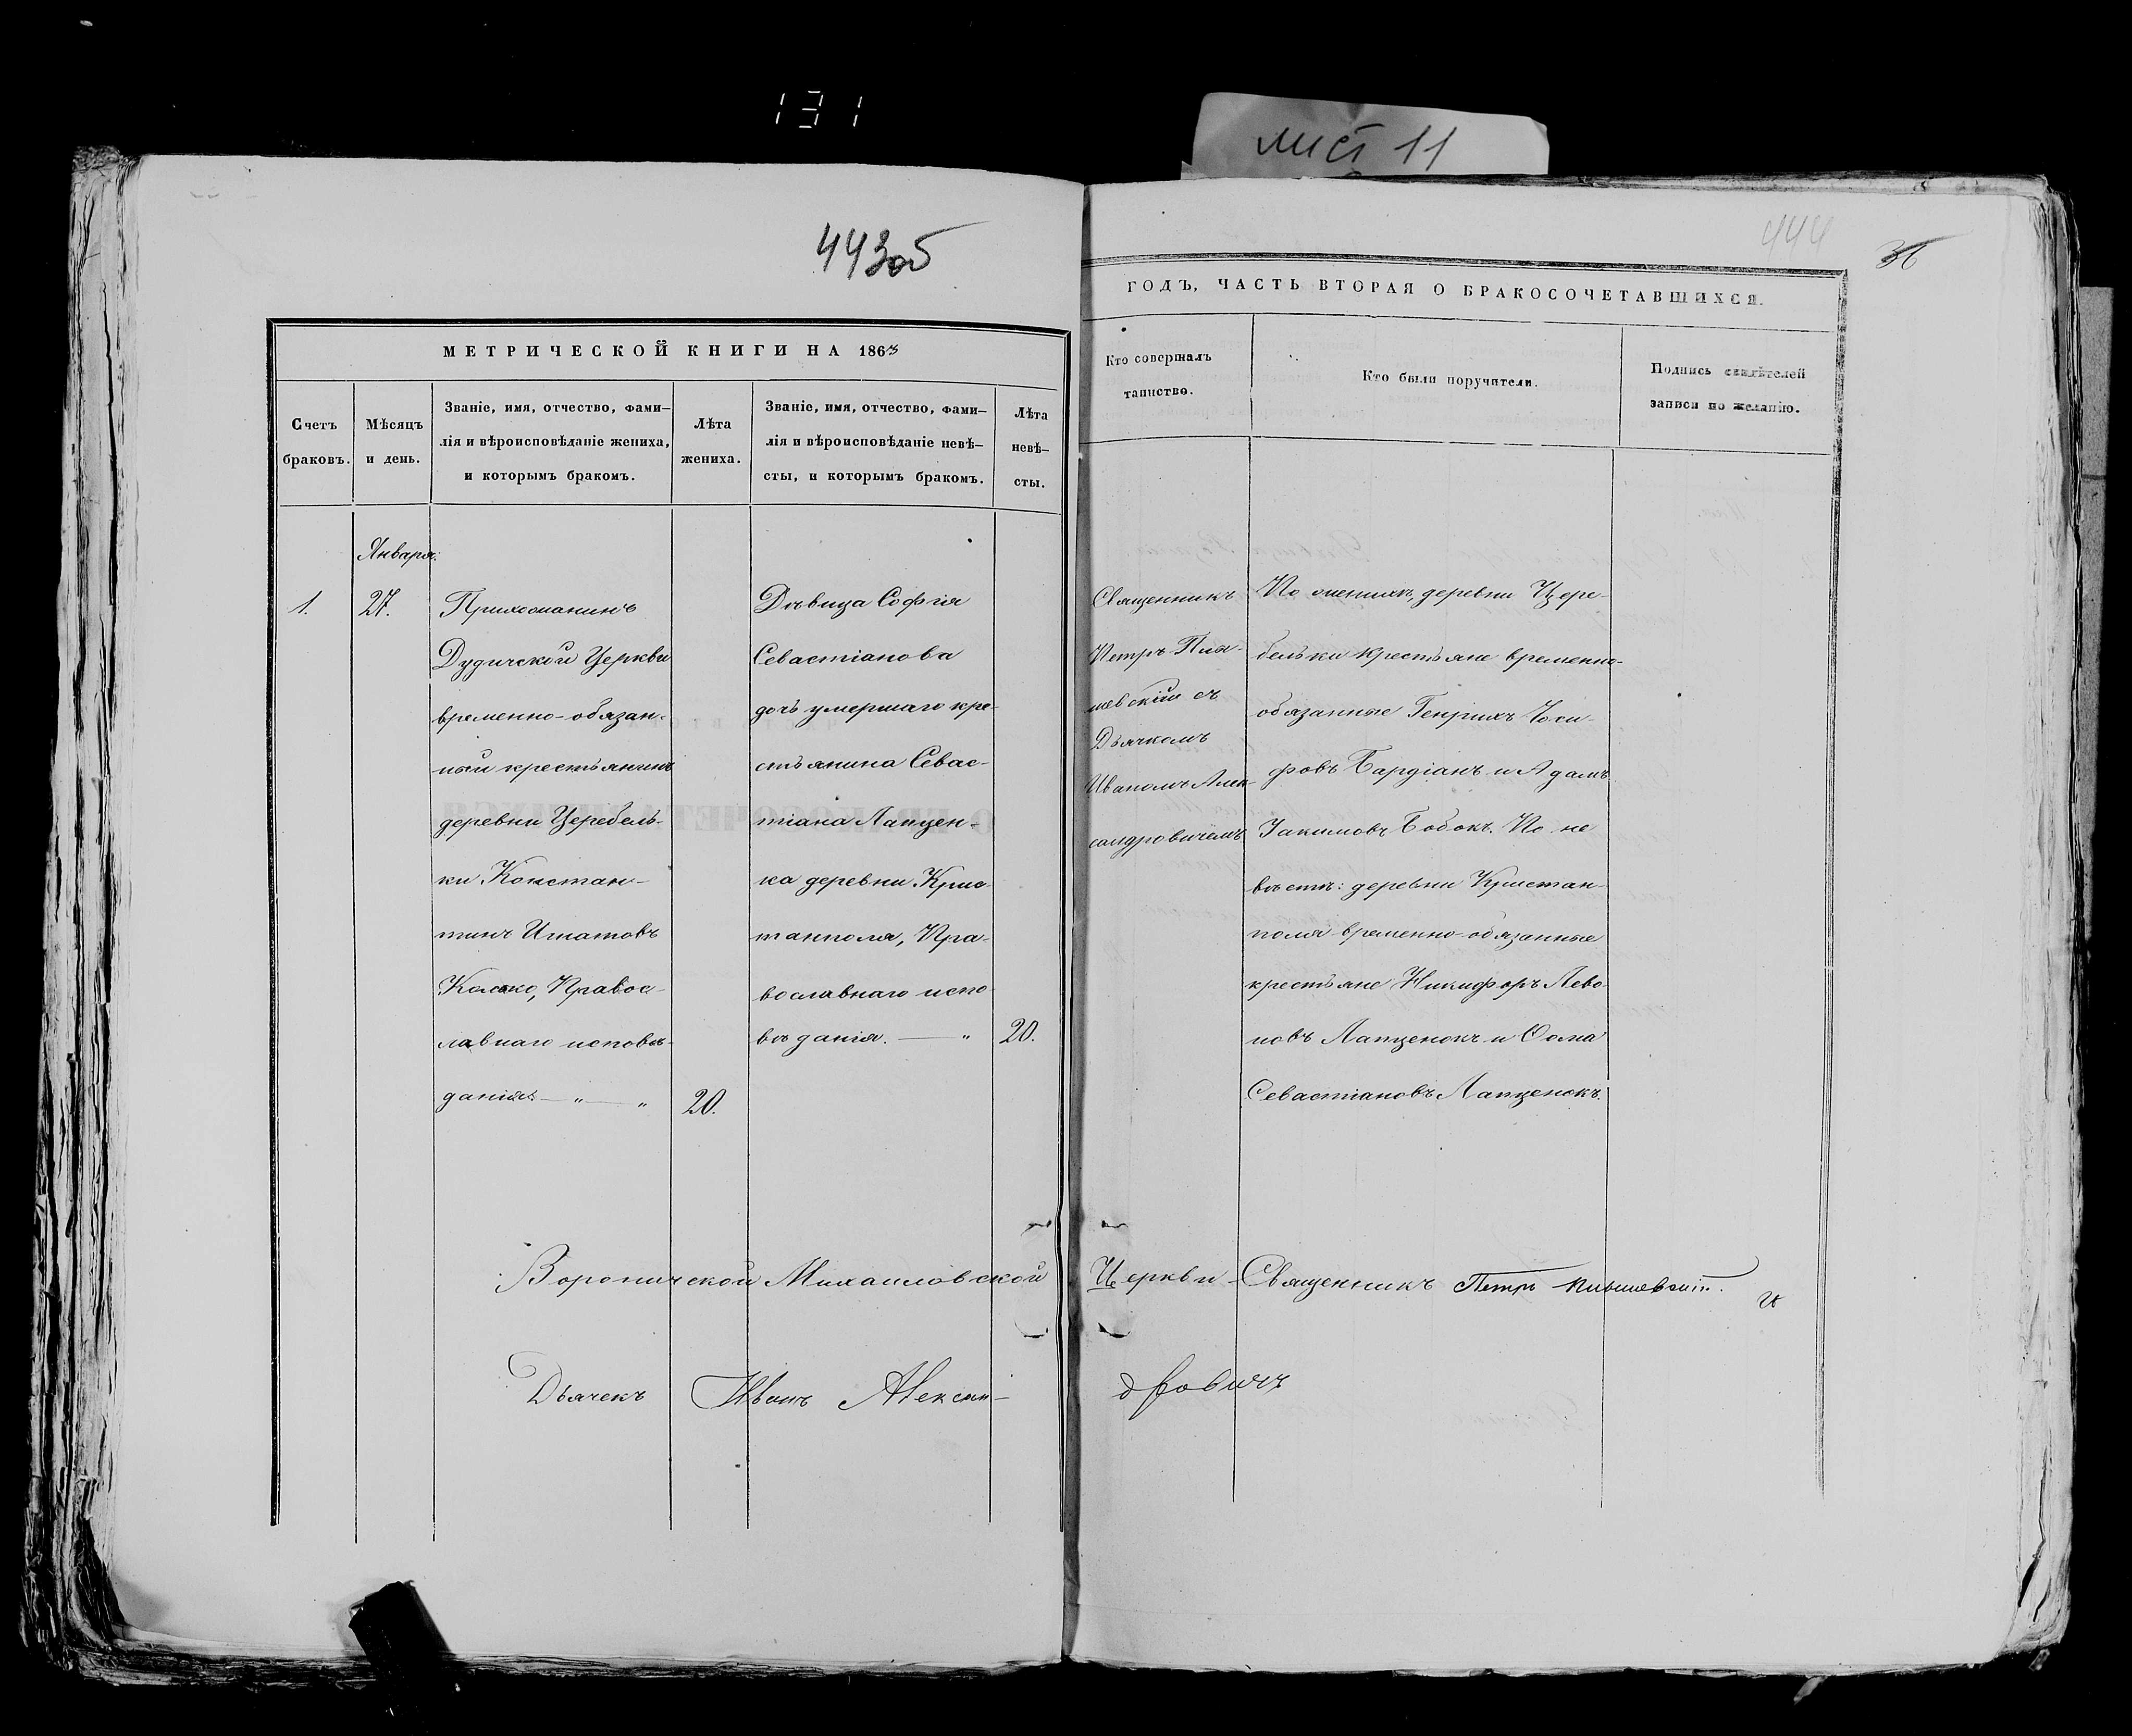 131
лист 11
443об
444
36
МЕТРИЧЕСКОЙ КНИГИ НА 1863
ГОДЪ, ЧАСТЬ ВТОРАЯ О БРАКОСОЧЕТАВШИХСЯ.
Счетъ
браковъ.
Мѣсяцъ
и день.
Званіе, имя, отчество, фами–
лія и вѣроисповѣданіе жениха,
и которымъ бракомъ.
Лѣта
жениха.
Званіе, имя, отчество, фами–
лія и вѣроисповѣданіе невѣ–
сты, и которымъ бракомъ.
Лѣта
невѣ–
сты.
Кто совершалъ
таинство.
Кто были поручители.
Подпись свидѣтелей
записи по желанію.
Января.
1.
27.
Прихожанинъ
Дудичской Церкви
временно-обязан-
ный крестьянинъ
деревни Церебель-
ки Констан-
тинъ Игнатовъ
Правос-
лавнаго исповѣ-
данія — „ — „
20.
Дѣвица Софія
Севастіанова
дочь умершаго кре-
стьянина Севас-
тіана Лапцен-
ка деревни Крис-
танполя, Пра-
вославнаго испо-
вѣданія. — „
20.
Священникъ
Петръ Плы-
шевскій съ
Дьячкомъ
Иваномъ Алек-
сандровичемъ
По женихѣ, деревни Цере-
бельки крестьяне временно-
обязанные Генрихъ Іоси-
фовъ Бардіанъ и Адамъ
Іакимовъ Бобокъ. По не-
вѣстѣ: деревни Кристан-
поля временно-обязанные
крестьяне Никифоръ Лево-
новъ Лапценокъ и Ѳома
Севастіановъ Лапценокъ.
Михайловской Церкви Священникъ Петръ Плышевскій.
и
Дьячекъ Иванъ Алексан-
дровичъ